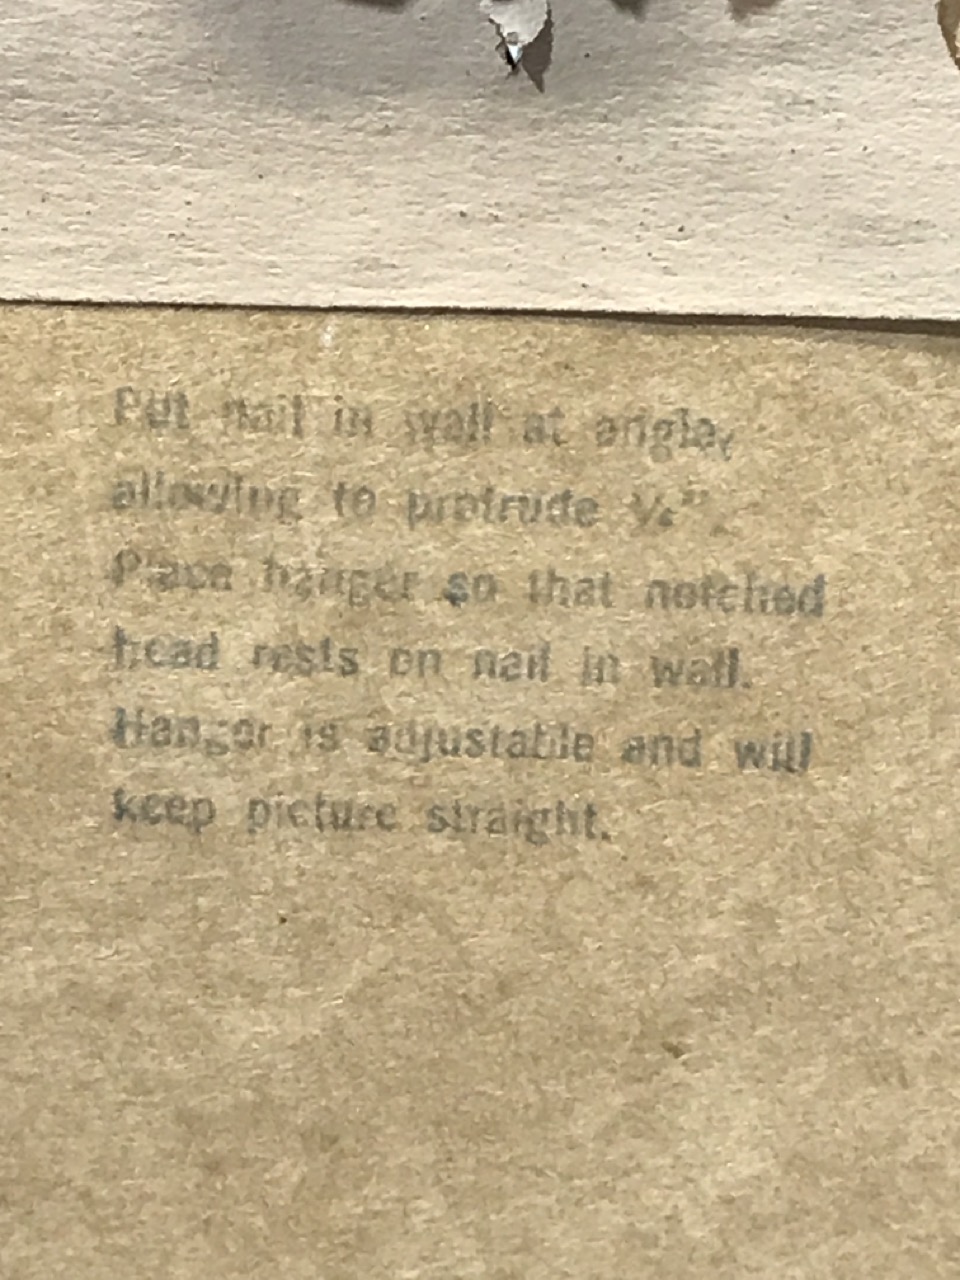 Put nail in wall at angle,
allowing to protrude ¼".
Place hanger so that notched
head rests on nail in wall.
Hanger is adjustable and will
keep picture straight.